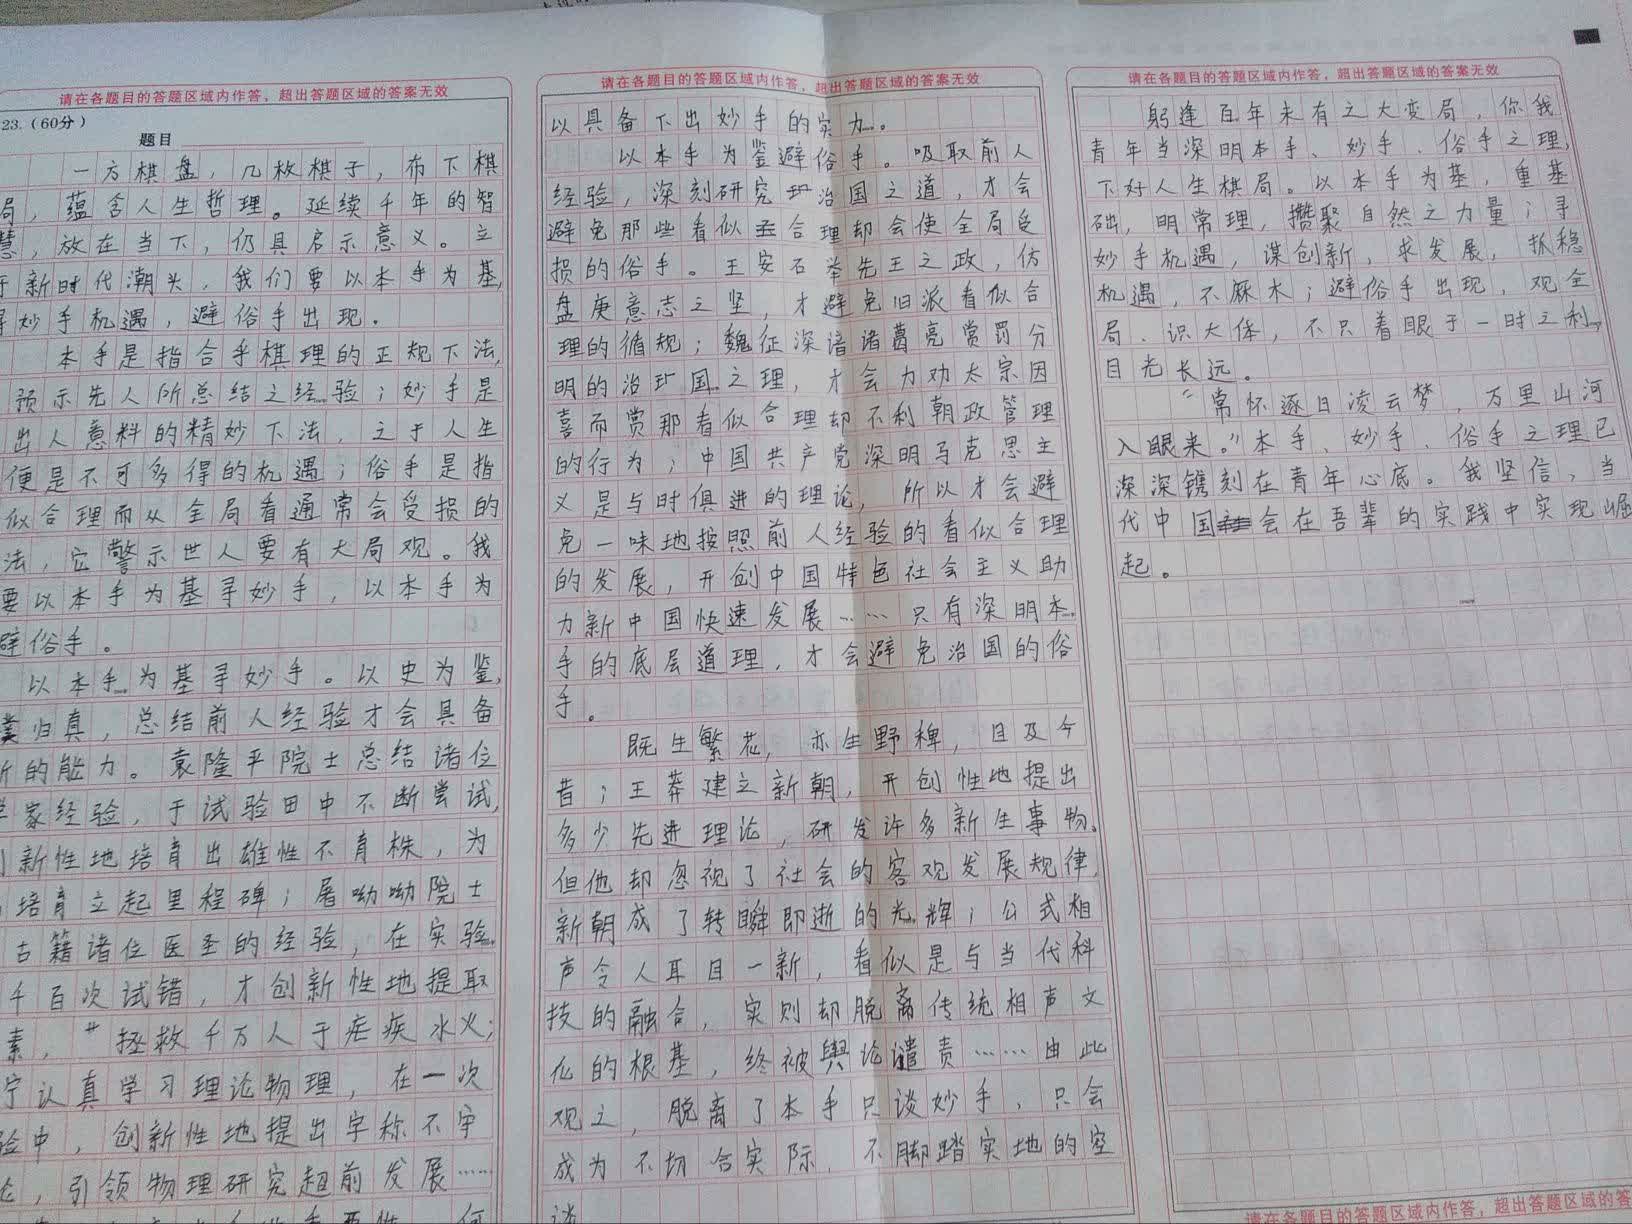 请在各题目的答题区域内作答，超出答题区域的答案无效
23.（60分）
题目
一方棋盘，几枚棋子，布下棋
局，蕴含人生哲理。延续千年的智
慧，放在当下，仍具启示意义。立
于新时代潮头，我们要以本手为基，
妙手机遇，避俗手出现。
本手是指合乎棋理的正规下法，
预示先人所总结之经验；妙手是
出人意料的精妙下法，之于人生
便是不可多得的机遇；俗手是指
似合理而从全局看通常会受损的
法，它警示世人要有大局观。我
要以本手为基寻妙手，以本手为
避俗手。
以本手为基寻妙手。以史为鉴，
归真，总结前人经验才会具备
的能力。袁隆平院士总结诸位
家经验，于试验田中不断尝试，
新性地培育出雄性不育株，为
培育立起里程碑；屠呦呦院士
古籍诸位医圣的经验，在实验
千百次试错，才创新性地提取
素，拯救千万人于疟疾水火；
宁认真学习理论物理，在一次
验中，创新性地提出宇称不宇
论，引领物理研究超前发展……
请在各题目的答题区域内作答，超出答题区域的答案无效
以具备下出妙手的实力。
以本手为鉴避俗手。吸取前人
经验，深刻研究治国之道，才会
避免那些看似合理却会使全局受
损的俗手。王安石举先王之政，仿
盘庚意志之坚，才避免旧派看似合
理的循规；魏征深谙诸葛亮赏罚分
明的治国之理，才会力劝太宗因
喜而赏那看似合理却不利朝政管理
的行为；中国共产党深明马克思主
义是与时俱进的理论，所以才会避
免一味地按照前人经验的看似合理
的发展，开创中国特色社会主义助
力新中国快速发展……只有深明本
手的底层道理，才会避免治国的俗
手。
既生繁花，亦生野稗，目及今
昔；王莽建立新朝，开创性地提出
多少先进理论，研发许多新生事物。
但他却忽视了社会的客观发展规律，
新朝成了转瞬即逝的光辉；公式相
声令人耳目一新，看似是与当代科
技的融合，实则却脱离传统相声文
化的根基，终被舆论谴责……由此
观之，脱离了本手只谈妙手，只会
成为不切合实际，不脚踏实地的空
谈
请在各题目的答题区域内作答，超出答题区域的答案无效
躬逢百年未有之大变局，你我
青年当深明本手、妙手、俗手之理，
下好人生棋局。以本手为基，重基
础，明常理，攒聚自然之力量；寻
妙手机遇，谋创新，求发展，抓稳
机遇，不麻木；避俗手出现，观全
局、识大体，不只着眼于一时之利，
目光长远。
“常怀逐日凌云梦，万里山河
入眼来。”本手、妙手、俗手之理已
深深镌刻在青年心底。我坚信，当
代中国会在吾辈的实践中实现崛
起。
请在各题目的答题区域内作答，超出答题区域的答